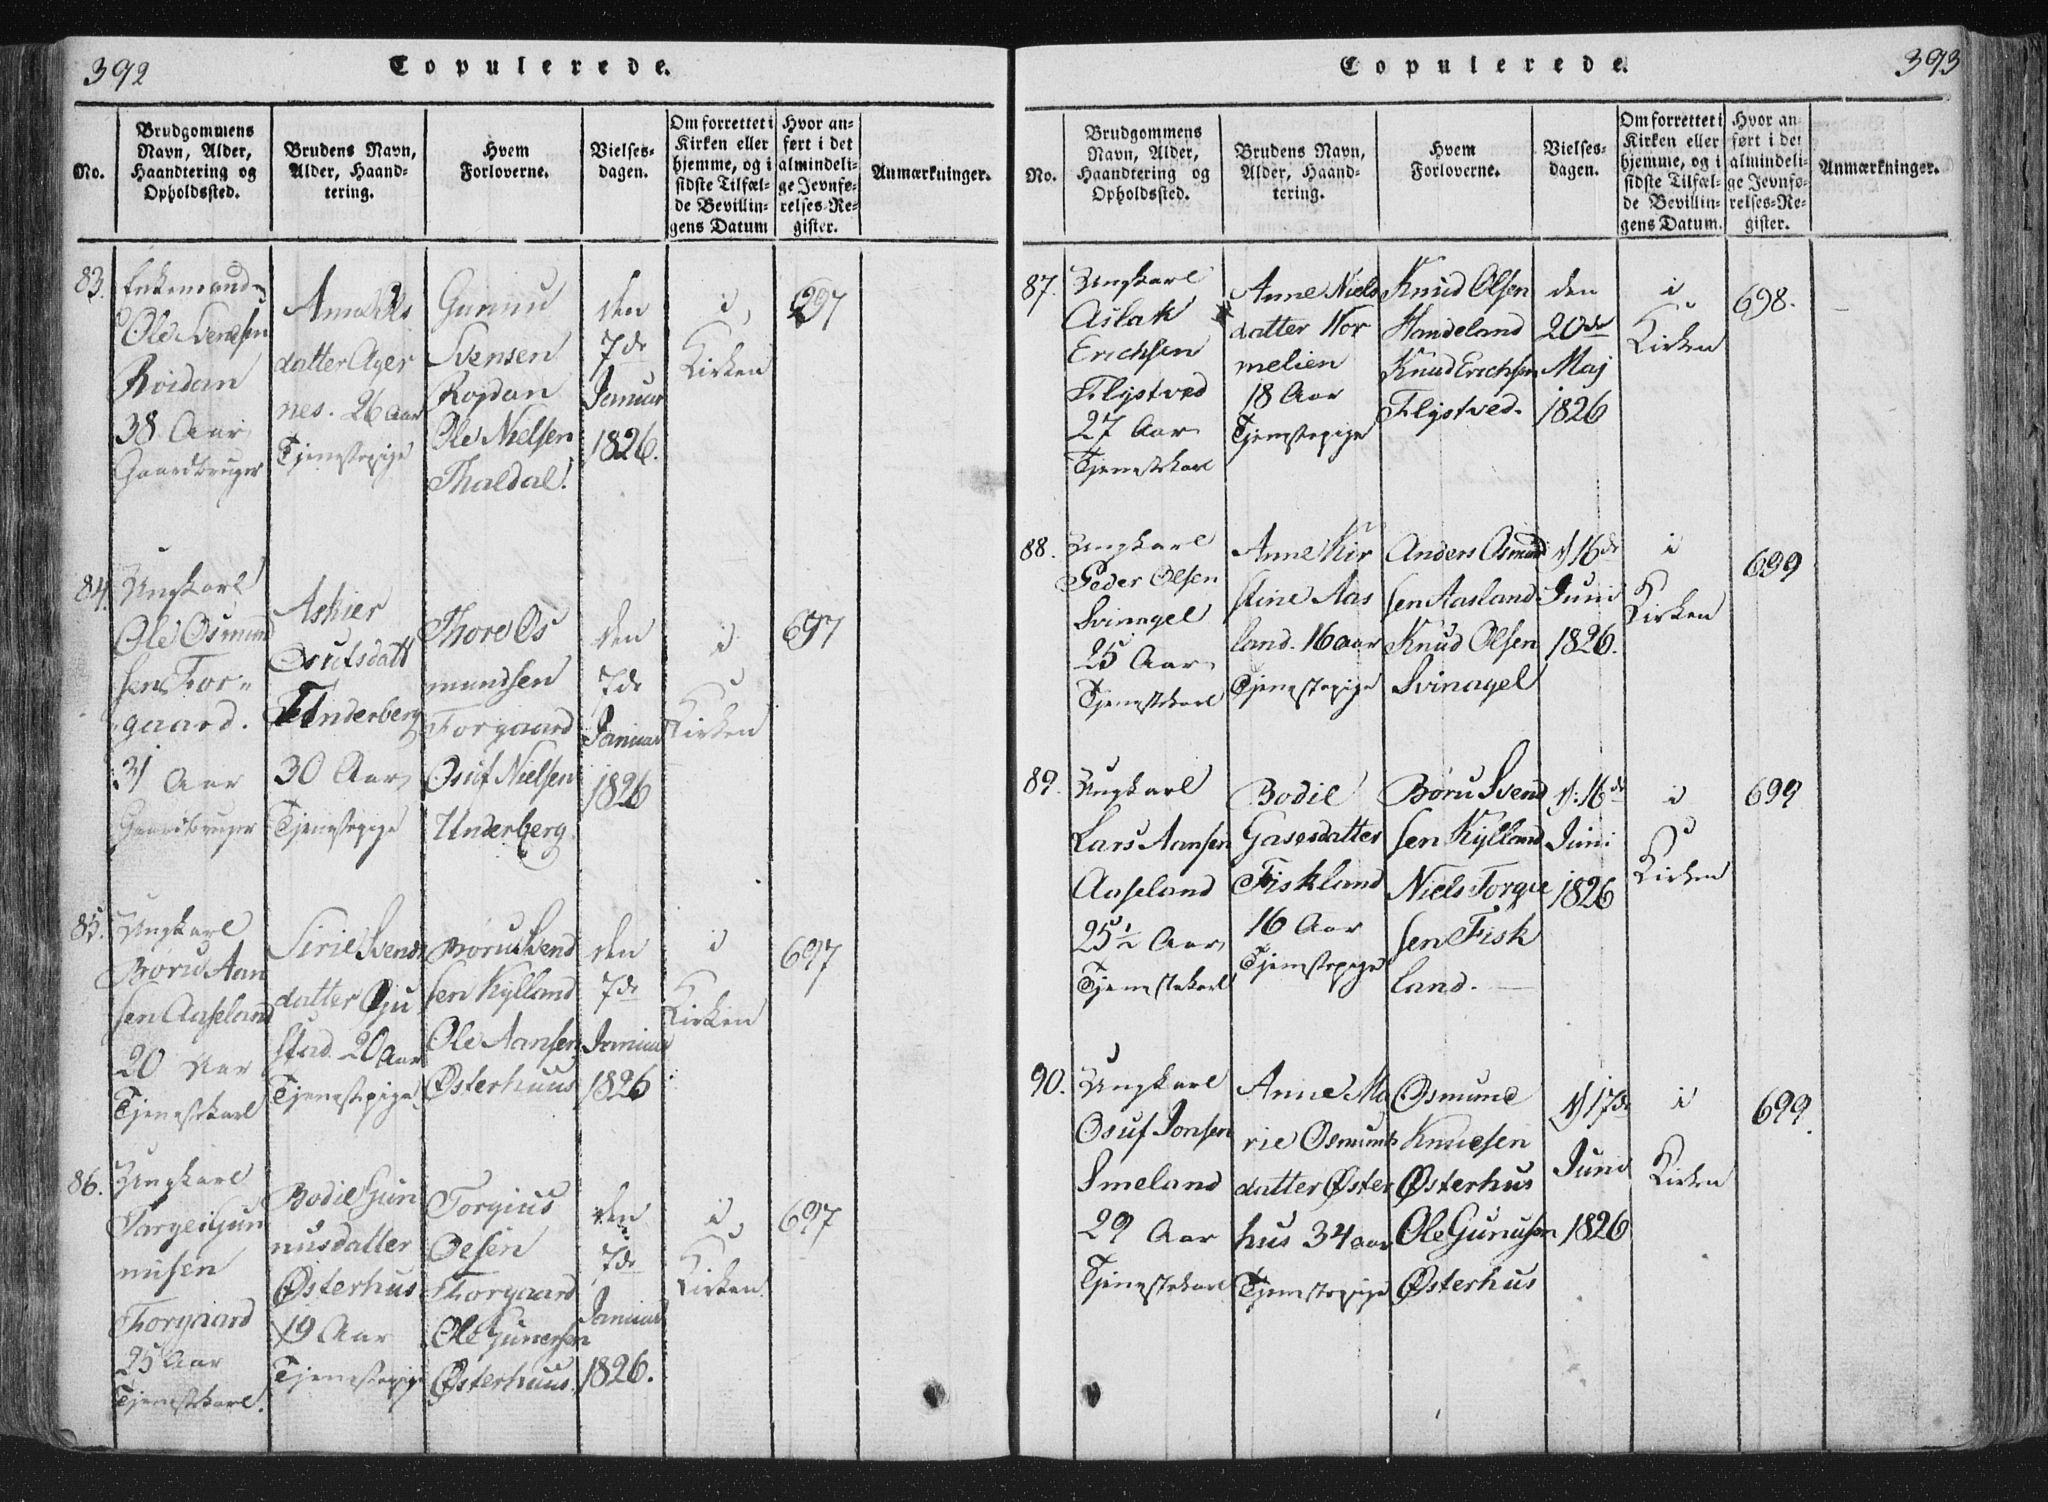 392
Copulerede.
No.
Brudgommens
Navn, Alder,
Haandtering og
Opholdssted.
Brudens Navn,
Alder, Haand-
tering.
Hvem
Forloverne.
Vielses-
dagen.
Om forrettet i
Kirken eller
hjemme, og i
sidste Tilfæl-
de Bevillin-
gens Datum
Hvor an-
ført i det
almindeli-
ge Jevnfø-
relses-Re-
gister.
Anmærkninger.
83.
Enkemand
Ole Svensen
Roidan
38 Aar
Gaardbruger
Anne Nils
datter Ager
nes. 26 Aar
Tjenestepige
Gunnu
Svensen
Rojdan
Ole Nielsen
Thaldal.
den
7de
Januar
1826.
i
Kirken
697
84.
Ungkarl
Ole Osmund
sen For-
gaard.
31 Aar
Gaardbruger
Askier
Osufsdatt
Underberg
30 Aar
Tjenestepige
Thore Os
mundsen
Forgaard
Osuf Nielsen
Underberg
den
7de
Januar
1826
i
Kirken
697
85.
Ungkarl
Børu Aan
sen Aaseland
20 Aar
Tjenestekarl
Sirie Svends
datter Gju
stad. 20 Aar
Tjenestepige
Børu Svend
sen Kylland
Ole Aansen
Østerhuus
den
7de
Januar
1826
i
Kirken
697
86.
Ungkarl
Targei Gun
nusen
Thorgaard
25 Aar
Tjenestekarl.
Bodil Gun
nusdatter
Østerhus
19 Aar
Tjenestepige
Torgius
Oesen
Thorgaard
Ole Gunersen
Østerhuus
den
7de
Januar
1826.
i
Kirken
697
393
Copulerede.
No.
Brudgommens
Navn, Alder,
Haandtering og
Opholdssted.
Brudens Navn,
Alder, Haand-
tering.
Hvem
Forloverne.
Vielses-
dagen.
Om forrettet i
Kirken eller
hjemme, og i
sidste Tilfæl-
de Bevillin-
gens Datum.
Hvor an-
ført i det
almindeli-
ge Jevnfø-
relses-Re-
gister.
Anmærkninger.
87.
Ungkarl
Aslak
Erichsen
Flystved
27 Aar
Tjenestekarl
Anne Niels
datter Nor
melien
18 Aar
Tjenestepige
Knud Olsen
Handeland
Knud Erichsen
Flystved.
den
20de
Maj
1826
i
Kirken
698.
88.
Ungkarl
Peder Olsen
Svinagel
25 Aar
Tjenestekarl
Anne Kir
stine Aas
land. 16 aar
Tjenestepige
Anders Osmund
sen Aasland
Knud Olsen
Svinagel
d 16de
Juni
1826.
i
Kirken
699
89.
Ungkarl
Lars Aansen
Aaseland
25½ Aar
Tjenestekarl
Bodil
Gasesdatter
Fiskland
16 Aar
Tjenestepige
Børu Svend
sen Kylland
Niels Torgie
sen Fisk
land.
d: 16de
Juni
1826
i
Kirken
699
90.
Ungkarl
Osuf Jonsen
Smeland
29 Aar
Tjenestekarl
Anne Ma
rie Osmunds
datter Øster
hus 34 aar
Tjenestepige
Osmund
Knudsen
Østerhus
Ole Gunusen
Østerhus
d 17de
Juni
1826
i
Kirken
699.